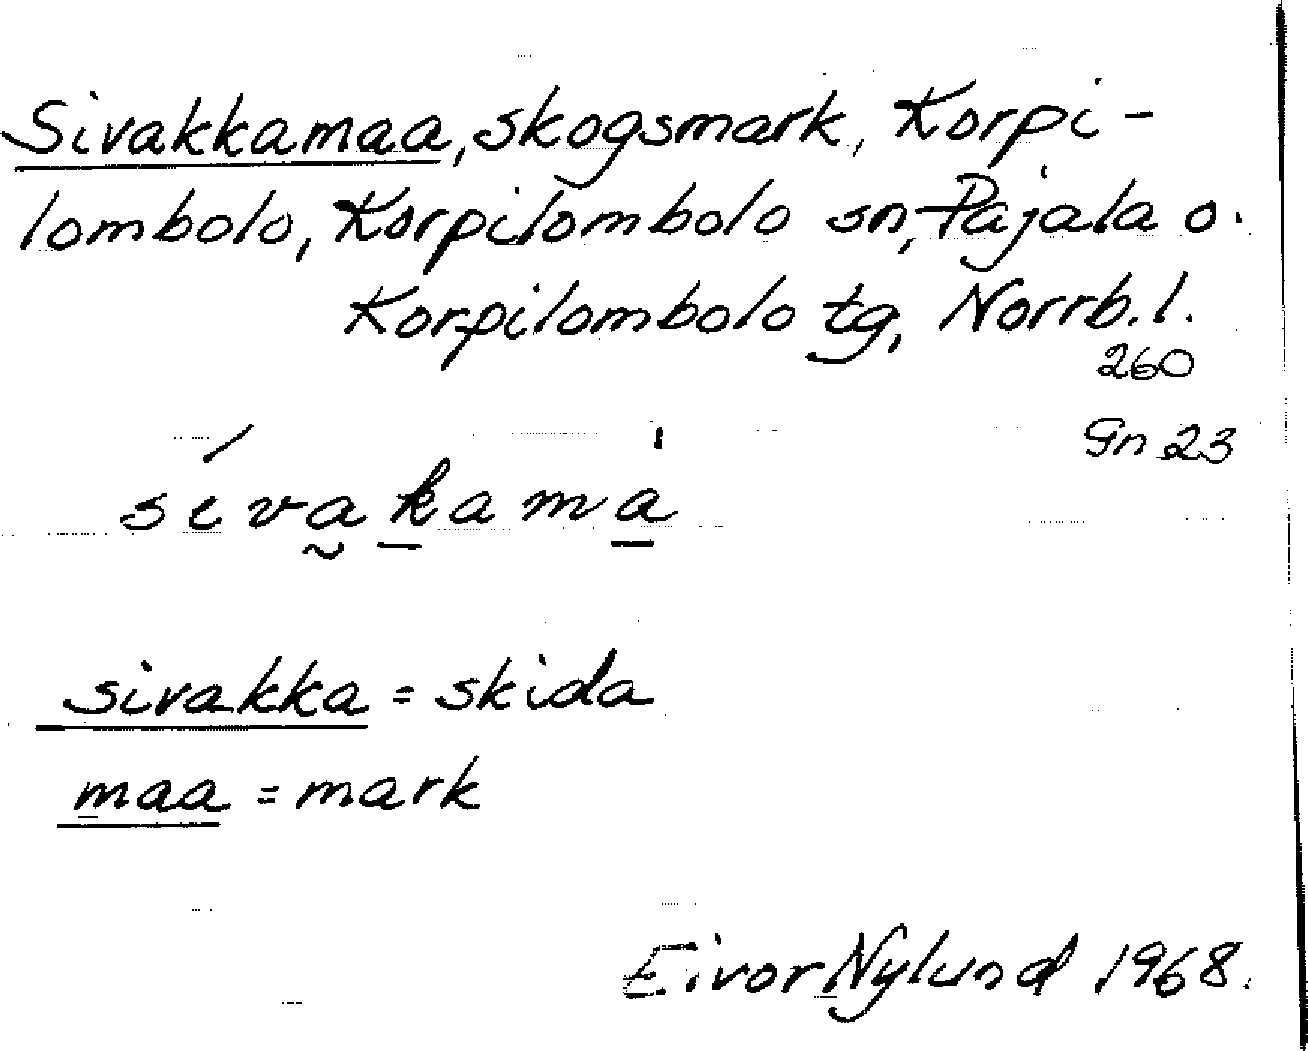 Sivakkamaa, skogsmark, Korpi-
lombolo, Korpilombolo sn, Pajala o.
Korpilombolo tg, Norrb. l.
260
Gn 23
síva̰ḵama̱̍
sivakka = skida
maa = mark
Eivor Nylund 1968.